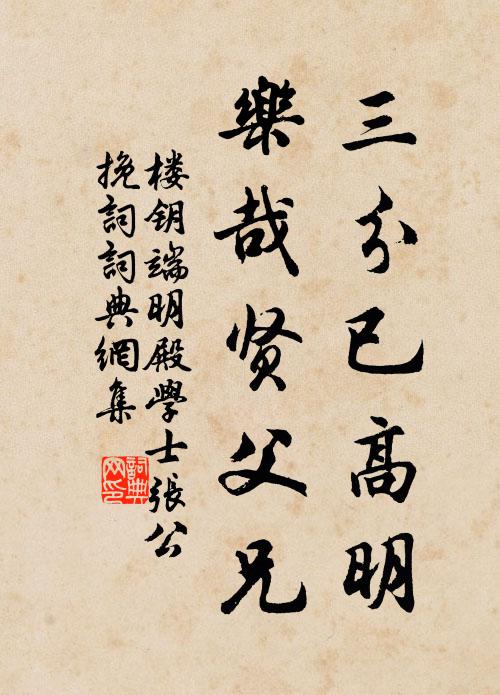 三分已高明
樂哉贤父兄
楼钥端明殿學士張公
挽詞詞典網集
詞典
网印